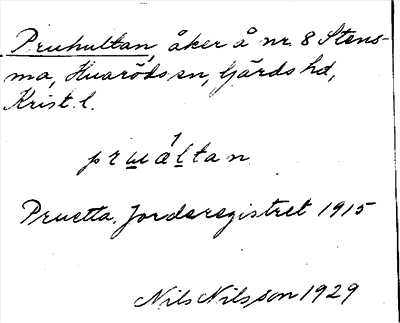 Pruhultan, åker å nr 8 Stens-
ma, Huaröds sn, Gärds hd,
Krist. l.
pruáltan
Pruetta. Jorderegistret 1915
Nils Nilsson 1929